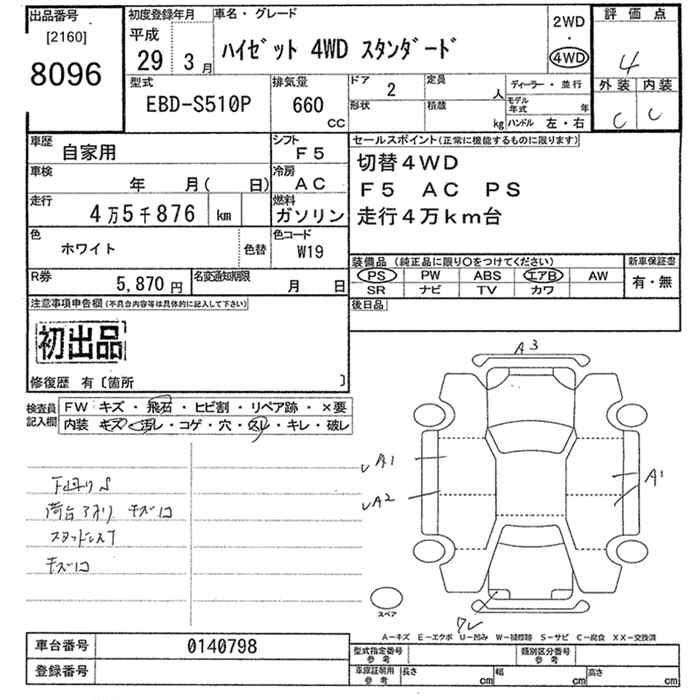 出品番号
[2160]
8096
初度登録年月
平成
29 3月
車名・グレード
ハイゼット 4WD スタンダード
2WD
・
4WD
評価点
4
外装 内装
C C
型式
EBD-S510P
排気量
660
CC
ドア 2
定員 人
形状
積載 kg
ディーラー・並行
モデル年式 年
ハンドル 左・右
車歴
自家用
シフト
F5
車検
年 月( 日)
冷房
AC
走行
4万5千876 km
燃料
ガソリン
色
ホワイト
色替
色コード
W19
R券
5,870円
名変通知期限
月 日
セールスポイント(正常に機能するものに限ります)
切替4WD
F5 AC PS
走行4万km台
装備品(純正品に限り○をつけてください)
PS PW ABS エアB AW
SR ナビ TV カワ
新車保証書
有・無
注意事項申告欄(不具合内容等は具体的に記入して下さい)
初出品
修復歴 有〔箇所 〕
後日品
検査員記入欄
FW キズ・飛石・ヒビ割・リペア跡・×要
内装 キズ・汚レ・コゲ・穴・スレ・キレ・破レ
下廻りS
荷台アオリ キズ凹
キズ凹
A3
A1
A2
A1
スペア
A-キズ E-エクボ U-凹み W-補修跡 S-サビ C-腐食 XX-交換済
車台番号
0140798
登録番号
型式指定番号
参考
類別区分番号
参考
車庫証明用
参考
長さ cm
幅 cm
高さ cm